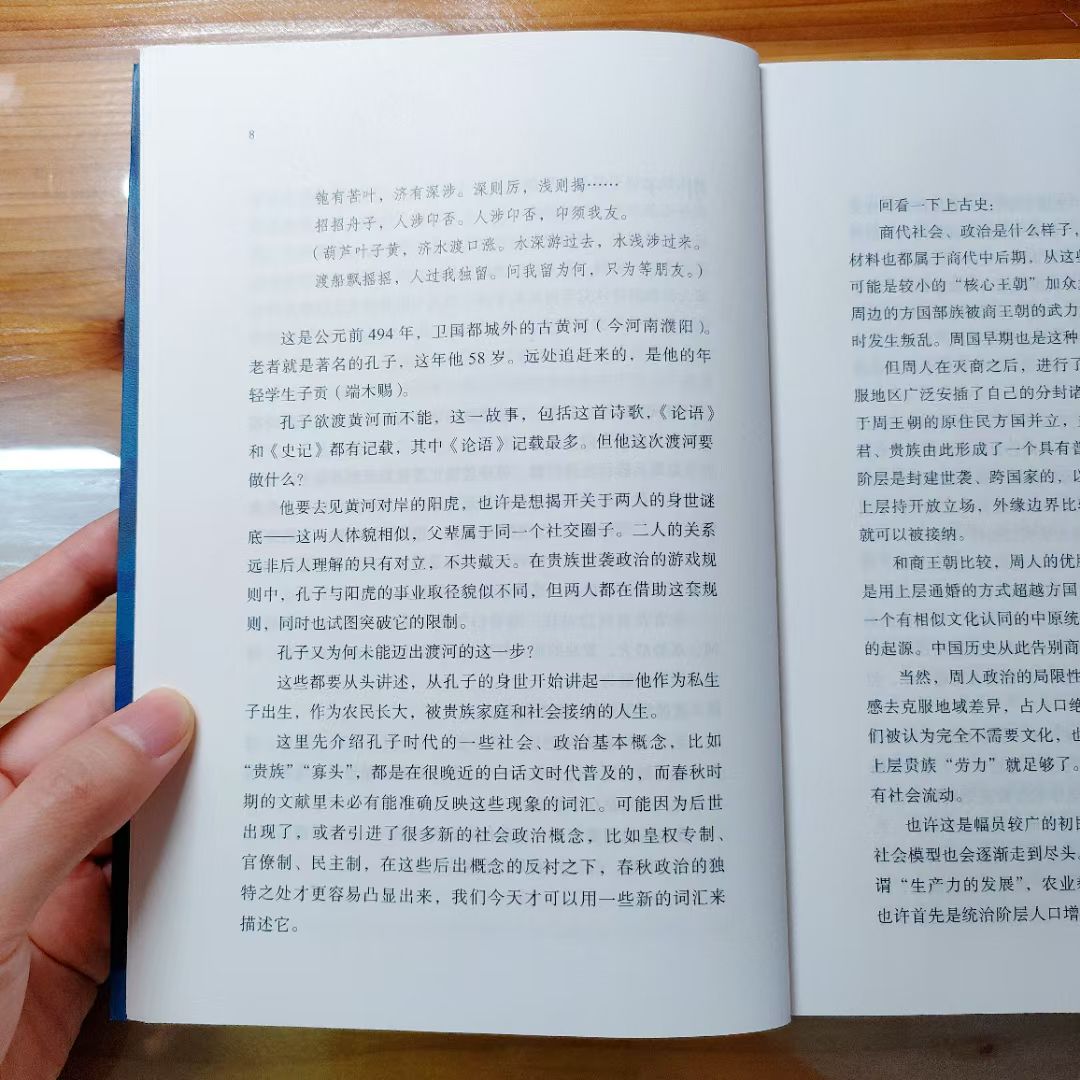 8
匏有苦叶，济有深涉。深则厉，浅则揭……
招招舟子，人涉卬否。人涉卬否，卬须我友。
（葫芦叶子黄，济水渡口涨。水深游过去，水浅涉过来。
渡船飘摇摇，人过我独留。问我留为何，只为等朋友。）
这是公元前 494 年，卫国都城外的古黄河（今河南濮阳）。
老者就是著名的孔子，这年他 58 岁。远处追赶来的，是他的年
轻学生子贡（端木赐）。
孔子欲渡黄河而不能，这一故事，包括这首诗歌，《论语》
和《史记》都有记载，其中《论语》记载最多。但他这次渡河要
做什么？
他要去见黄河对岸的阳虎，也许是想揭开关于两人的身世谜
底——这两人体貌相似，父辈属于同一个社交圈子。二人的关系
远非后人理解的只有对立，不共戴天。在贵族世袭政治的游戏规
则中，孔子与阳虎的事业取径貌似不同，但两人都在借助这套规
则，同时也试图突破它的限制。
孔子又为何未能迈出渡河的这一步？
这些都要从头讲述，从孔子的身世开始讲起——他作为私生
子出生，作为农民长大，被贵族家庭和社会接纳的人生。
这里先介绍孔子时代的一些社会、政治基本概念，比如
“贵族”“寡头”，都是在很晚近的白话文时代普及的，而春秋时
期的文献里未必有能准确反映这些现象的词汇。可能因为后世
出现了，或者引进了很多新的社会政治概念，比如皇权专制、
官僚制、民主制，在这些后出概念的反衬之下，春秋政治的独
特之处才更容易凸显出来，我们今天才可以用一些新的词汇来
描述它。
回看一下上古史：
商代社会、政治是什么样子，
材料也都属于商代中后期，从这些
可能是较小的“核心王朝”加众
周边的方国部族被商王朝的武力
时发生叛乱。周国早期也是这种
但周人在灭商之后，进行了
服地区广泛安插了自己的分封诸
于周王朝的原住民方国并立，
君、贵族由此形成了一个具有普
阶层是封建世袭、跨国家的，以
上层持开放立场，外缘边界比
就可以被接纳。
和商王朝比较，周人的优
是用上层通婚的方式超越方国
一个有相似文化认同的中原统
的起源。中国历史从此告别商
当然，周人政治的局限性
感去克服地域差异，占人口绝
们被认为完全不需要文化，也
上层贵族“劳力”就足够了。
有社会流动。
也许这是幅员较广的初
社会模型也会逐渐走到尽头。
谓“生产力的发展”，农业
也许首先是统治阶层人口增